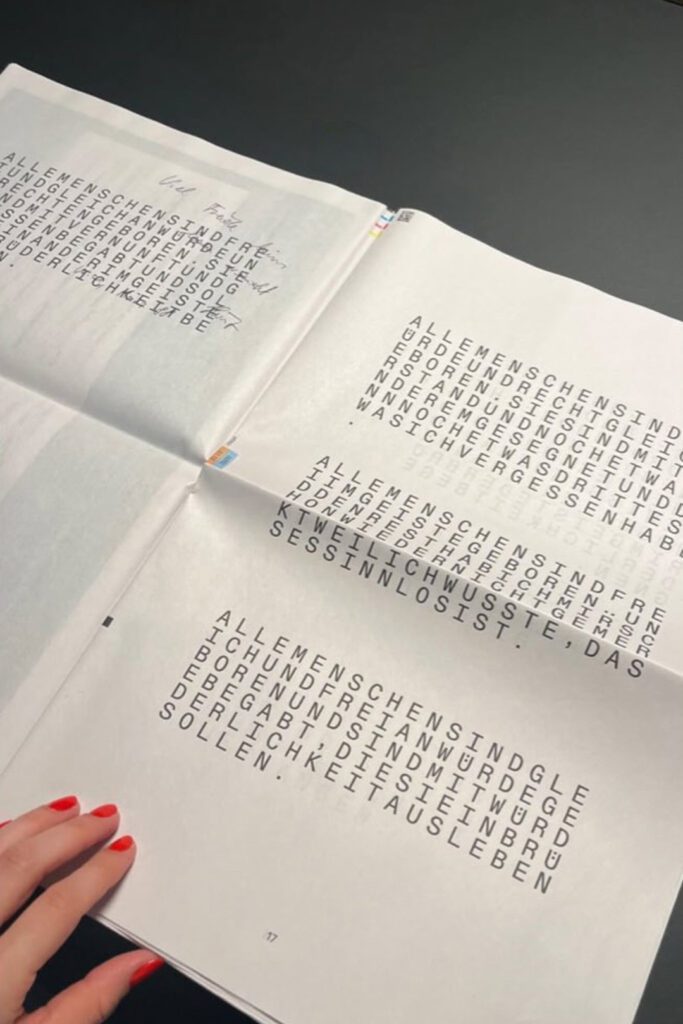 Viel Freude
ALLEMENSCHENSINDFRE
IUNDGLEICHANWÜRDEUN
RECHTENGEBOREN.SIE
NDMITVERNUNFTUNDG
SSENBEGABTUNDSOL
INANDERIMGEISTE
ÜDERLICHKEITBE
N.
ALLEMENSCHENSIND
ÜRDEUNDRECHTGLEIC
EBOREN.SIESINDMIT
RSTANDUNDNOCHETWA
NDEREMGESEGNETUNDD
NNNOCHETWASDRITTES
WASICHVERGESSENHABE
.
ALLEMENSCHENSINDFRE
IIMGEISTEGEBOREN.UN
DDENRESTHABICHMIRSC
HONWIEDERNICHTGEMER
KTWEILICHWUSSTE,DAS
SESSINNLOSIST.
ALLEMENSCHENSINDGLE
ICHUNDFREIANWÜRDEGE
BORENUNDSINDMITWÜRD
EBEGABT,DIESIEINBRÜ
DERLICHKEITAUSLEBEN
SOLLEN.
17